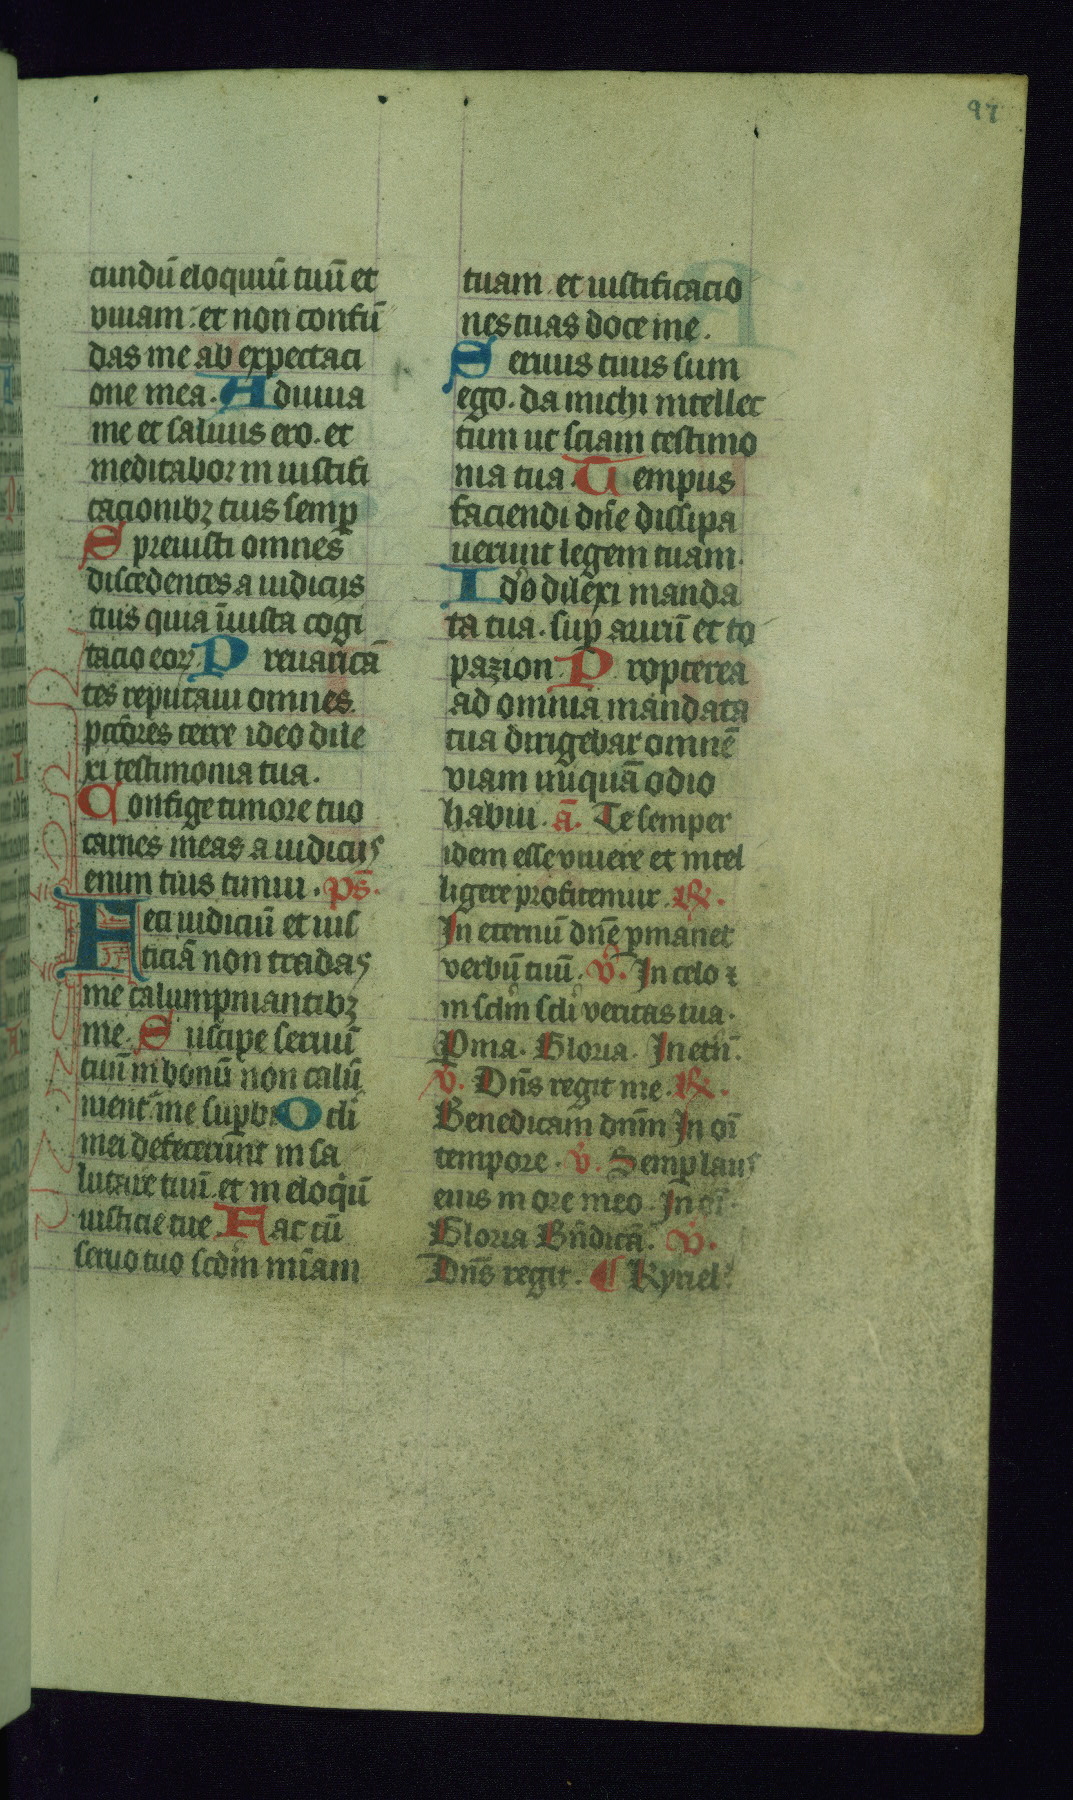 97
cundū eloquiū tuū et
viuam. et non confū
das me ab expectaci
one mea. Adiuua
me et saluus ero. et
meditabor in iustifi
cacionibꝫ tuis semꝑ
Spreuisti omnes
discedentes a iudiciis
tuis quia iniusta cogi
tacio eoꝝ. Preuaricā
tes reputaui omnes
pctōres terre ideo dile
xi testimonia tua.
Confige timore tuo
carnes meas a iudiciis
enim tuis timui. ps̄.
Feci iudiciū et ius
ticiā non tradas
me calumpniantibꝫ
me. Suscipe seruū
tuū in bonū non calū
nient᷑ me supbi Ocli
mei defecerunt in sa
lutare tuū. et in eloqiū
iusticie tue. Fac cū
seruo tuo scdm mīam
tuam. et iustificacio
nes tuas doce me.
Seruus tuus sum
ego. da michi intellec
tum ut sciam testimo
nia tua. Tempus
faciendi dn̄e dissipa
uerunt legem tuam.
Ido dilexi manda
ta tua. suꝑ aurū et to
pazion. Propterea
ad omnia mandata
tua dirigebar omnē
viam iniquā odio
habui. ā. Te semper
idem esse viuere et intel
ligere profitemur. ℟.
In eternū dn̄e ꝑmanet
verbū tuū. ℣. In celo ⁊
in sclm scli veritas tua.
Pma. Gloria. In etn̄.
℣. Dn̄s regit me. ℟.
Benedicam dnm̄ In oī
tempore. ℣. Semꝑ laus
eius in ore meo. In oī.
Gloria Bn̄dicā. ℣.
Dn̄s regit. ¶ Kyriel.